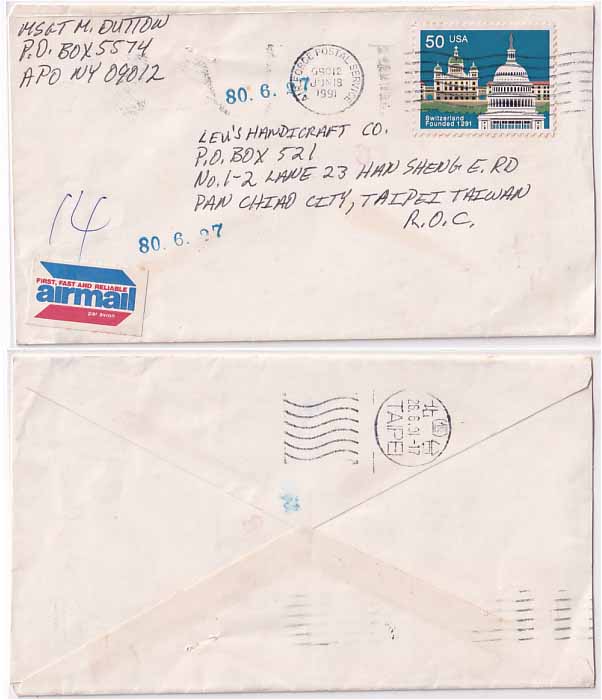 MSGT M. DUTTON
P.O. BOX 5574
APO NY 09012
80. 6. 27
AIR FORCE POSTAL SERVICE
09012
JUN 18
1991
50 USA
Switzerland
Founded 1291
LEU'S HANDICRAFT CO.
P.O. BOX 521
NO. 1-2 LANE 23 HAN SHENG E. RD
PAN CHIAO CITY, TAIPEI TAIWAN
R.O.C.
14
80. 6. 27
FIRST, FAST AND RELIABLE
airmail
par avion
台北
26.6.91-17
TAIPEI